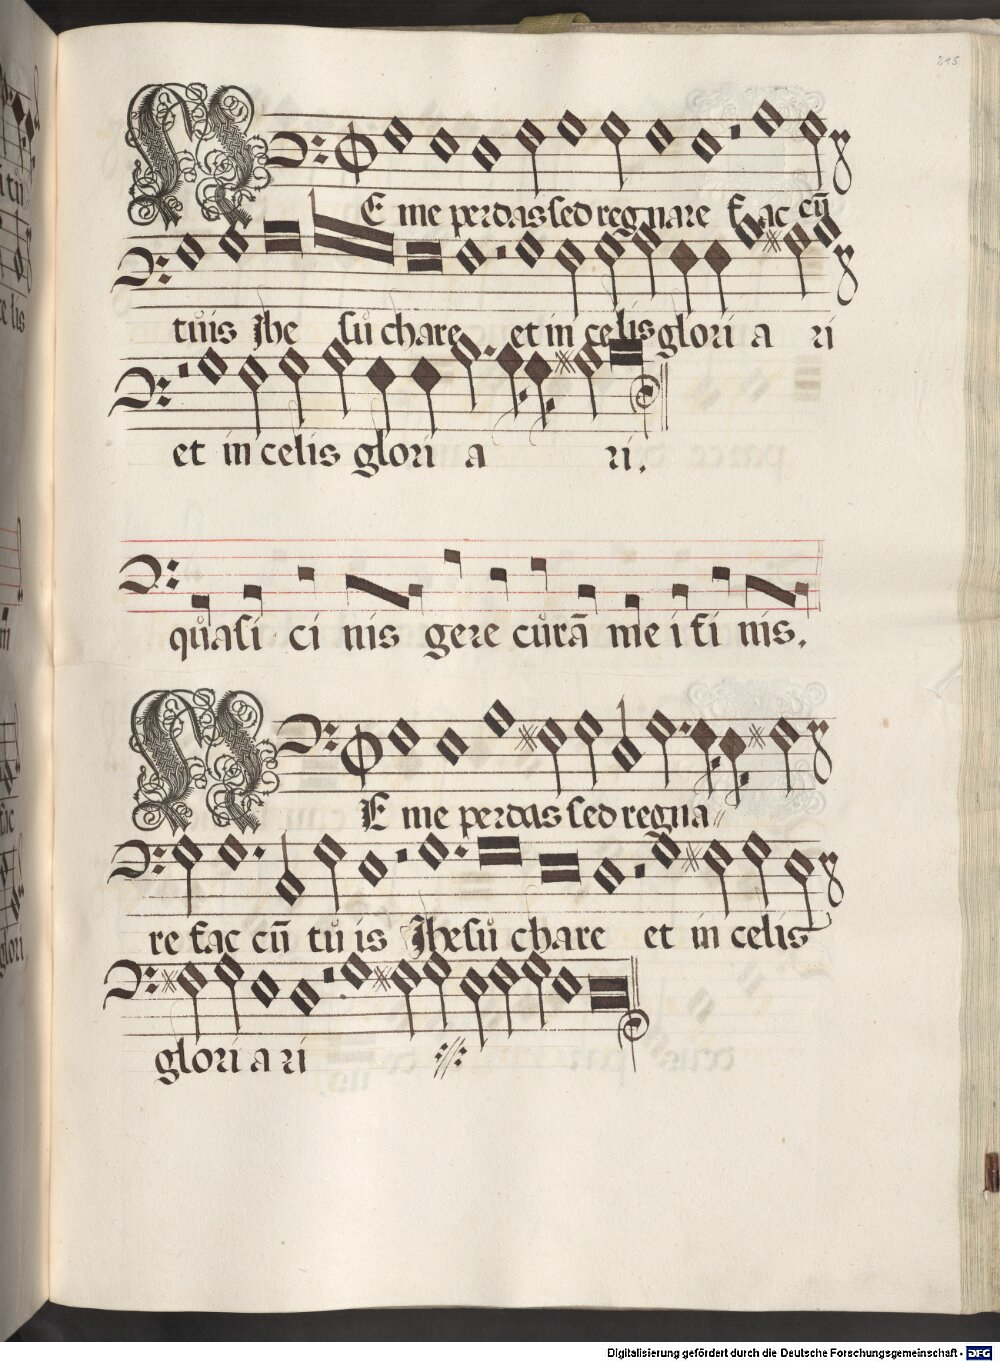 215
NE me perdas sed regnare fac cũ
tůis Jhe sů chare et in celis glori a ri
et in celis glori a ri.
qůasi ci nis gere cůrã me i fi nis.
NE me perdas sed regna //
re fac cũ tů is Jhesů chare et in celis
glori a ri
Digitalisierung gefördert durch die Deutsche Forschungsgemeinschaft - DFG